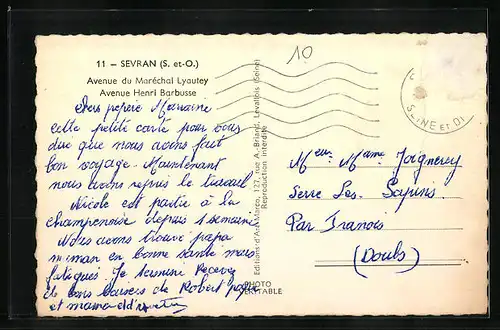 11 — SEVRAN (S. et-O.)
Avenue du Maréchal Lyautey
Avenue Henri Barbusse
10
Chers pepère Mémaine
cette petite carte pour vous
dire que nous avons fait
bon voyage. Maintenant
nous avons repris le travail
Nicole est partie à la
champenoise depuis 1 semaine
Nous avons trouvé papa
maman en bonne santé mais
fatigués. Je termine Recevez
de bons baisers de Robert papa
et maman
Editions d'Art Marco, 127, rue A. Briand, Levallois (Seine)
Reproduction interdite
PHOTO
VÉRITABLE
SEINE et OI
Mme
Serre Les Sapins
Par Franois
(Doubs)